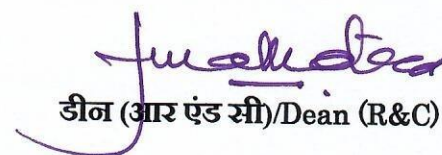 डीन (आर एंड सी)/Dean (R&C)